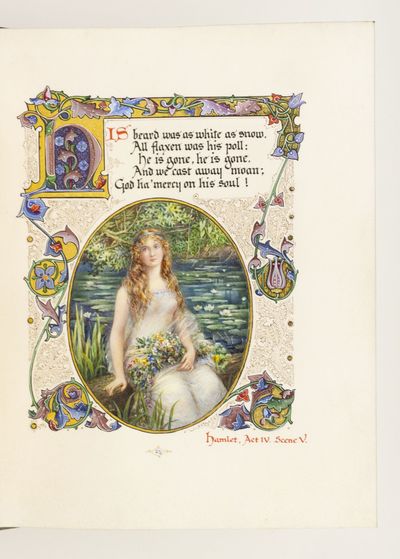 HIS beard was as white as snow,
All flaxen was his poll:
He is gone, he is gone,
And we cast away moan;
God ha' mercy on his soul!
Hamlet, Act IV. Scene V.